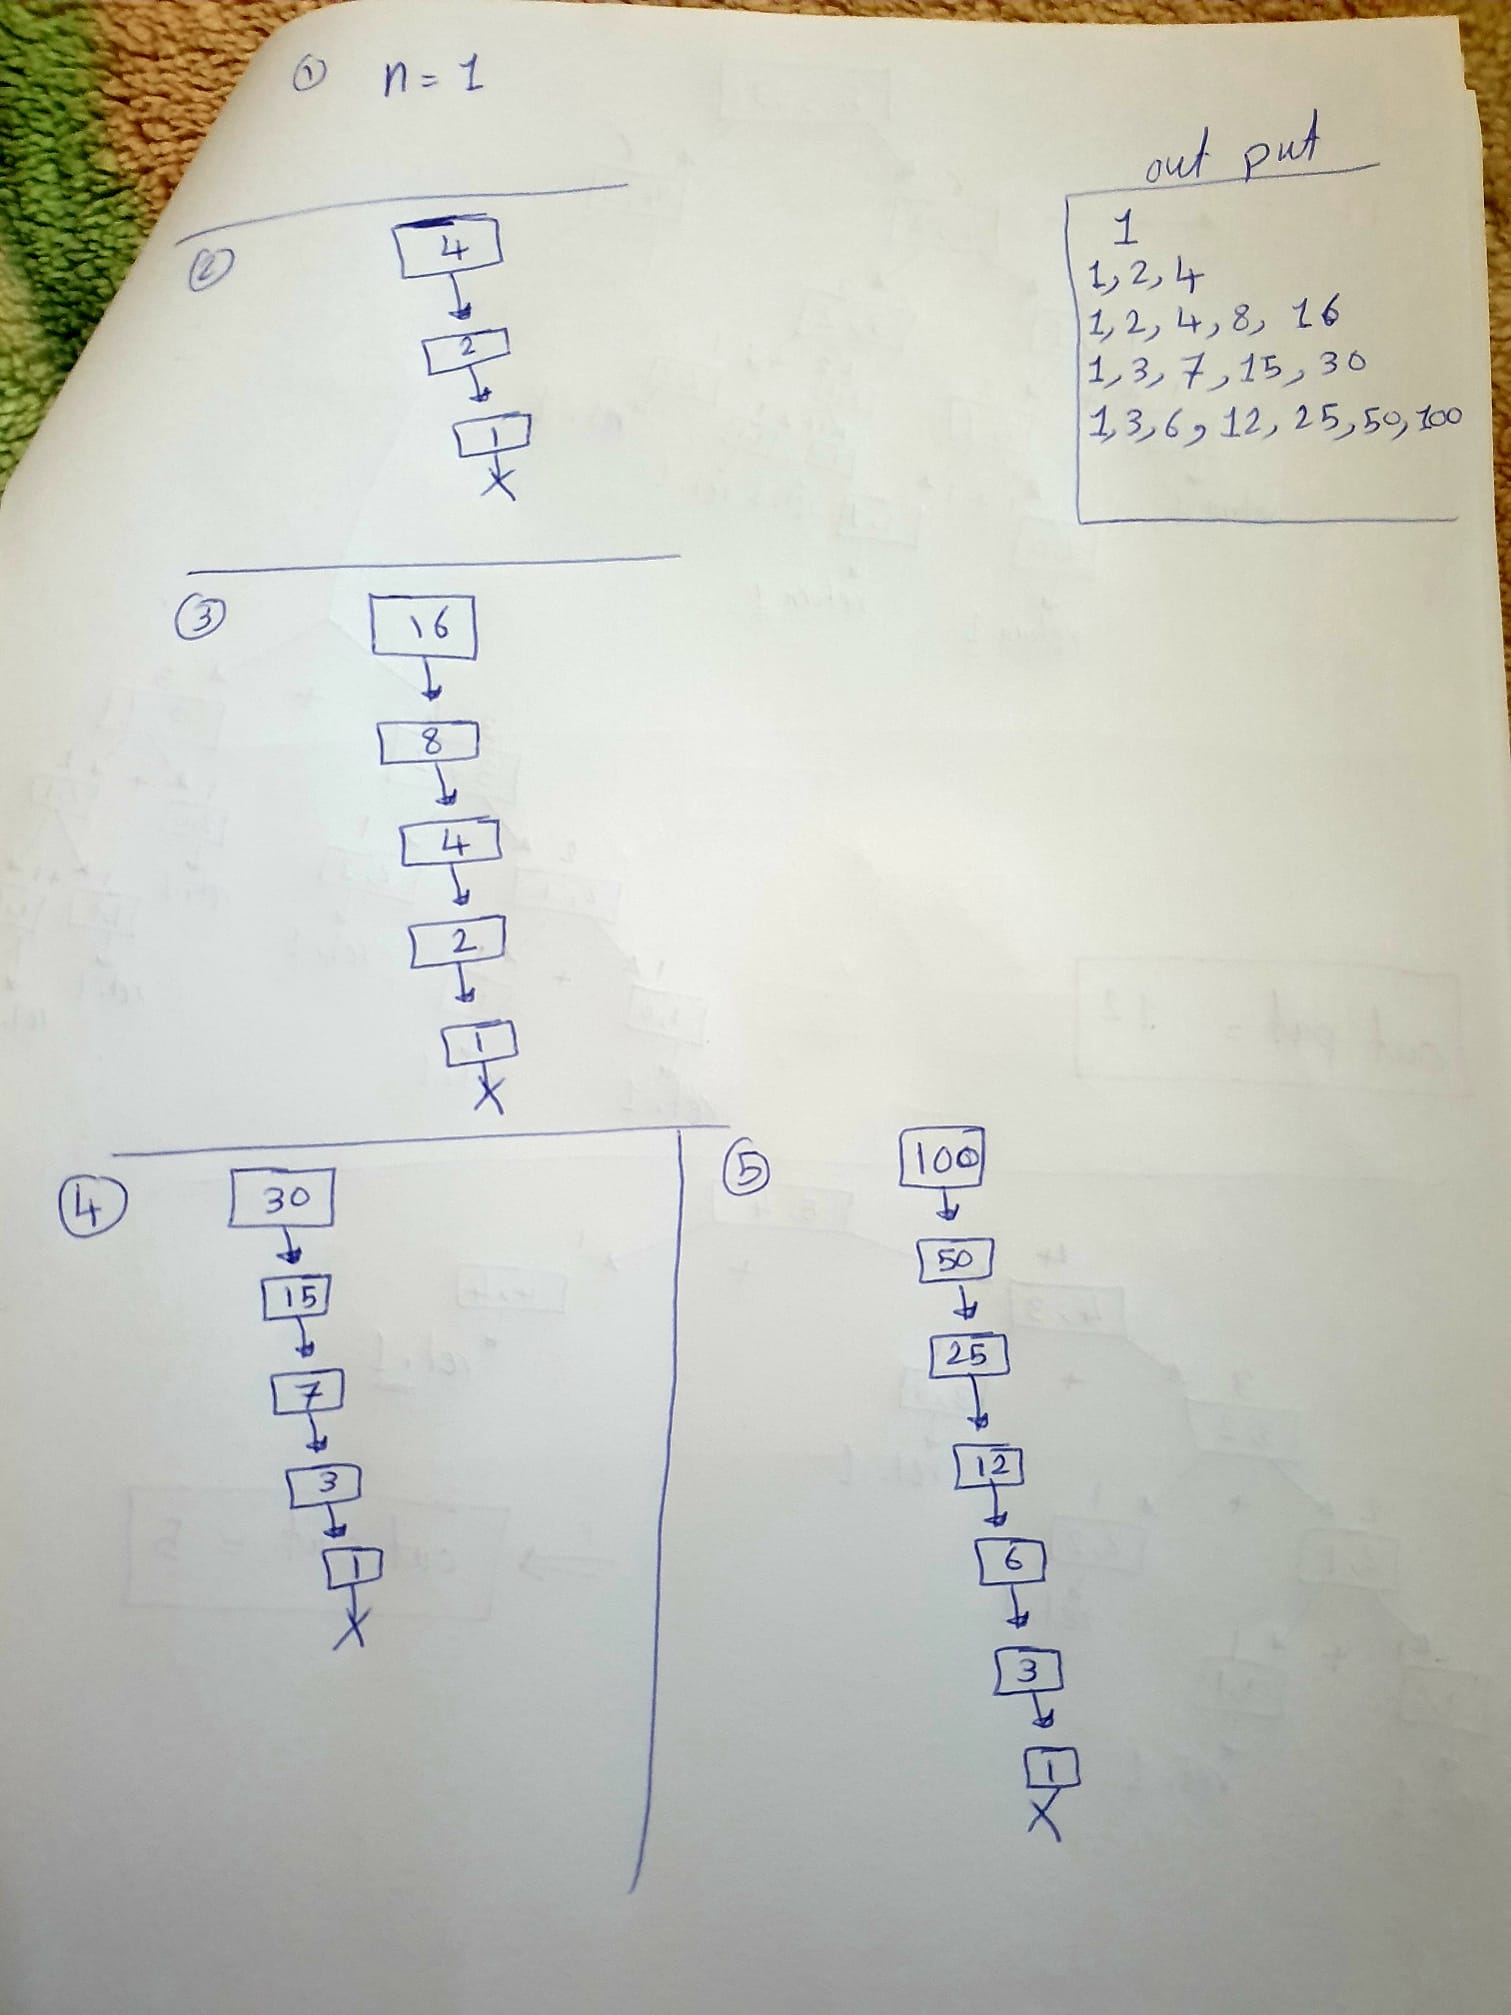 ① n = 1
out put
1
1, 2, 4
1, 2, 4, 8, 16
1, 3, 7, 15, 30
1, 3, 6, 12, 25, 50, 100
②
4
2
1
X
③
16
8
4
2
1
X
④
30
15
7
3
1
X
⑤
100
50
25
12
6
3
1
X